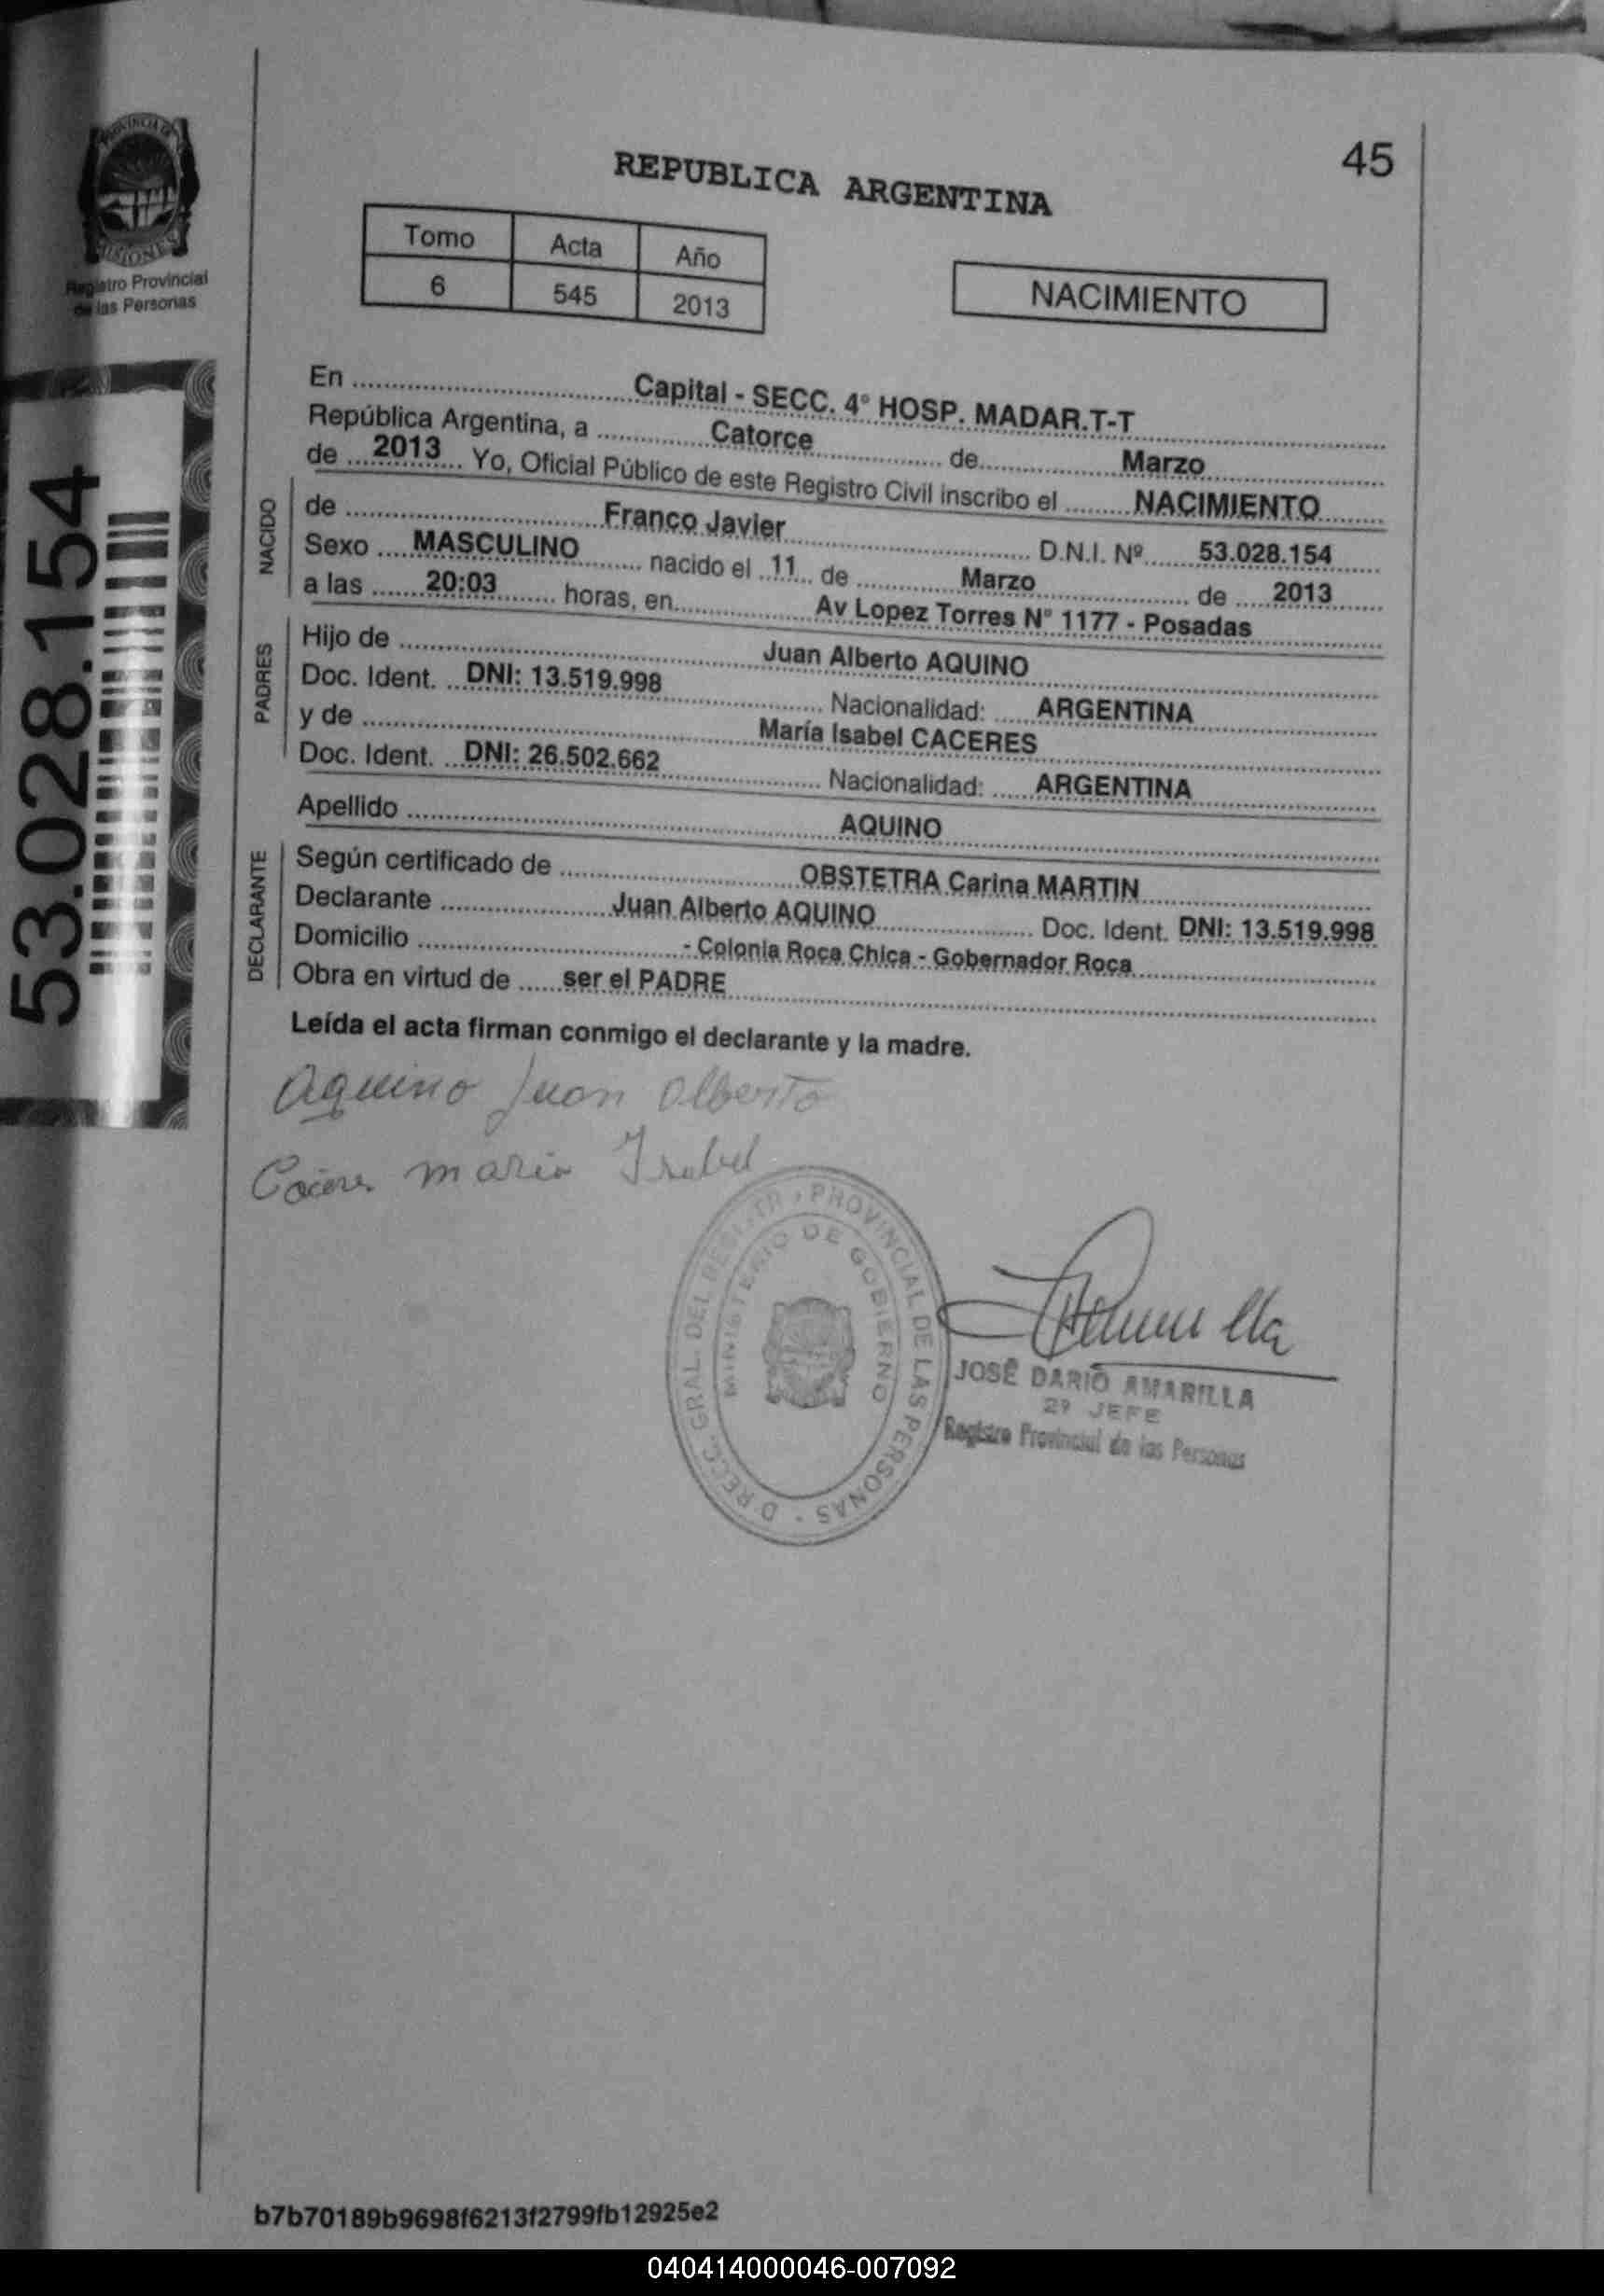 45
REPUBLICA ARGENTINA
PROVINCIA DE
MISIONES
Registro Provincial
de las Personas
Tomo Acta Año
6 545 2013
NACIMIENTO
53.028.154
En Capital - SECC. 4° HOSP. MADAR.T-T
República Argentina, a Catorce de Marzo
de 2013 Yo, Oficial Público de este Registro Civil inscribo el NACIMIENTO
NACIDO
de Franco Javier D.N.I. Nº 53.028.154
Sexo MASCULINO nacido el 11 de Marzo de 2013
a las 20:03 horas, en Av Lopez Torres N° 1177 - Posadas
PADRES
Hijo de Juan Alberto AQUINO
Doc. Ident. DNI: 13.519.998 Nacionalidad: ARGENTINA
y de María Isabel CACERES
Doc. Ident. DNI: 26.502.662 Nacionalidad: ARGENTINA
Apellido AQUINO
DECLARANTE
Según certificado de OBSTETRA Carina MARTIN
Declarante Juan Alberto AQUINO Doc. Ident. DNI: 13.519.998
Domicilio - Colonia Roca Chica - Gobernador Roca
Obra en virtud de ser el PADRE
Leída el acta firman conmigo el declarante y la madre.
Aquino Juan Alberto
Caceres maria Isabel
DIRECC. GRAL. DEL REGISTRO PROVINCIAL DE LAS PERSONAS
MINISTERIO DE GOBIERNO
JOSÉ DARIO AMARILLA
2º JEFE
Registro Provincial de las Personas
b7b70189b9698f6213f2799fb12925e2
040414000046-007092